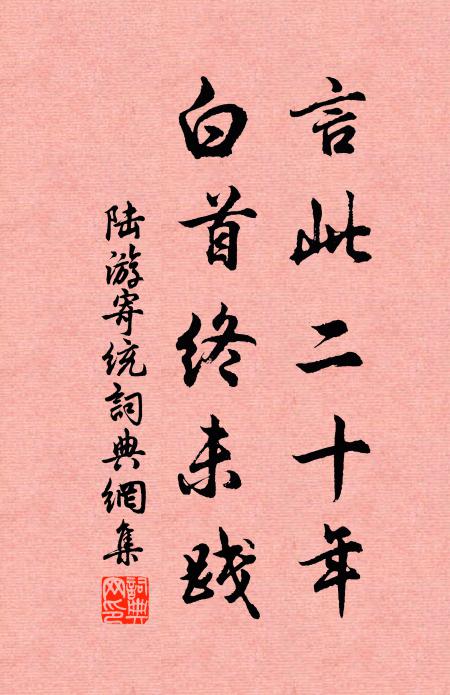 言此二十年
白首终未践
陆游寄统詞典網集
詞典网印